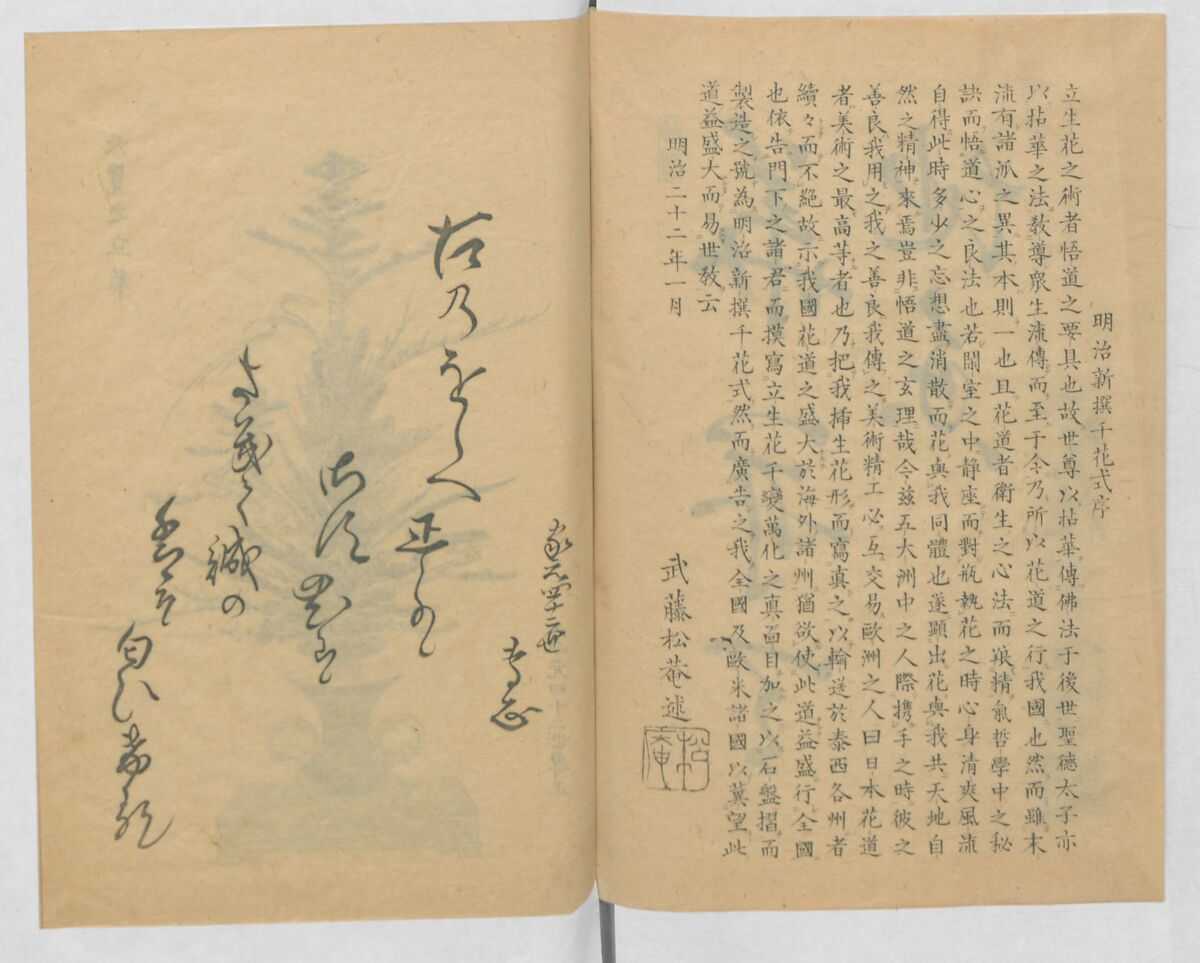 明治新撰千花式序
立生花之術者悟道之要具也故世尊以拈華傳佛法于後世聖德太子亦
以拈華之法教導衆生流傳而至于今乃所以花道之行我國也然而雖末
流有諸派之異其本則一也且花道者衛生之心法而狼精氣哲學中之秘
訣而悟道心之良法也若閑室之中静座而對瓶執花之時心身清爽風流
自得此時多少之忘想盡消散而花與我同體也遂顕出花與我共天地自
然之精神來焉豈非悟道之玄理哉今茲五大洲中之人際携手之時彼之
善良我用之我之善良我傳之美術精工必互交易歐洲之人曰日本花道
者美術之最高等者也乃把我挿生花形而寫真之以輸送於泰西各州者
續々而不絶故示我國花道之盛大於海外諸州猶欲使此道益盛行全國
也依告門下之諸君而摸寫立生花千變萬化之真面目加之以石盤摺而
製造之號為明治新撰千花式然而廣告之我全國及歐米諸國以冀望此
道益盛大而易世教云
明治二十二年一月
武藤松菴述
家元四十二世
専正
古乃をしへ正しく
の
匂ひ